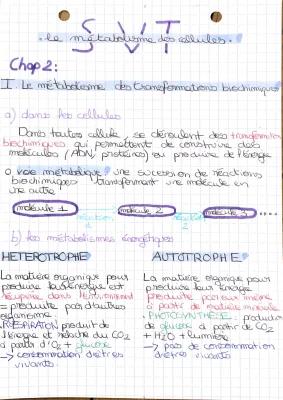 SVT
• le métabolisme des cellules •
Chap 2:
I. Le métabolisme des transformations biochimiques
a) dans les cellules
Dans toutes cellule, se déroulent des transformations
biochimiques qui permettent de construire des
molécules (ADN, protéines) ou produire de l'énergie
o voie métabolique : une succession de réactions
biochimiques transforment une molécule en
une autre
molécule 1 → molécule 2 → molécule 3 ....
réaction 1 réaction 2
b) les métabolismes énergétiques
HETEROTROPHE
La matière organique pour
produire leur énergie est
récupérée dans l'environnement
→ produite par d'autres
organisme.
• RESPIRATION produit de
l'énergie et relâche du CO2
à partir d'O2 + glucose
→ consommation d'êtres
vivants
AUTOTROPHE
La matière organique pour
produire leur énergie
produite par eux même
à partir de matière minérale
• PHOTOSYNTHÈSE : production
de glucose à partir de CO2
+ H2O + lumière
→ pas de consommation
d'êtres vivants